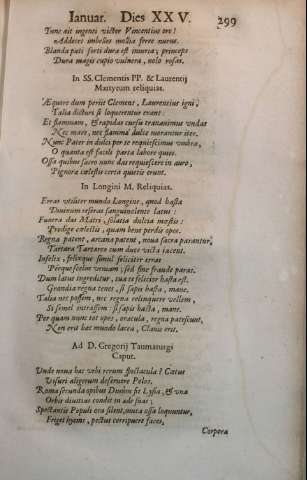 Ianuar. Dies XXV. 299
Tunc ait ingenti victor Vincentius ore!
Adderet imbelles mollia ferre
Blanda pati forti dura est iniuria; princeps
Dura magis cupio vulnera, nolo rosas.
In SS. Clementis PP. & Laurentij
Martyrum reliquias.
Æquore dum periit Clemens, Laurentius igni,
Talia dicturi si loquerentur erant:
Et flammam, & rapidas cursu transiuimus vndas
Nec mare, nec flammæ dulce morantur iter.
Nunc Pater in dulci per te requiescimus vmbra,
O quanta est facili parta labore quies.
Ossa quibus sacro nunc das requiescere in auro,
Pignora cælestis certa quietis erunt.
In Longini M. Reliquias.
Erras vltiùs mundo Longine, quod hasta
Diuinum reseras sanguinolente latus:
Funera das Matri, solatia dulcia mæstis:
Prodige cælestis, quam bene perdis opes.
Regna patent, arcana patent, noua sacra parantur,
Tartara Tartareo cum duce victa iacent.
Infelix, felixque simul feliciter erras
Perque scelus veniam; sed sine fraude paras.
Dum latus ingreditur, tua te feliciter hasta est.
Grandia regna tenes, si sapis hasta, mane.
Talia nec possem, nec regna relinquere vellem,
Si semel intrassem: si sapis hasta, mane.
Per quam nunc tot opes, oracula, regna patescunt,
Non erit hac mundo lancea, Clauis erit.
Ad D. Gregorij Taumaturgi
Caput.
Vnde nouus hac vehi rerum spectacula? Cætus
Visuri aligerum deseruere Polos.
Roma secunda opibus Diuûm fit Lysia, & vna
Orbis diuitias condit in æde suas;
Spectantis Populi ora silent, muta ossa loquuntur,
Friget hyems, pectus corripuere faces,
Corpora